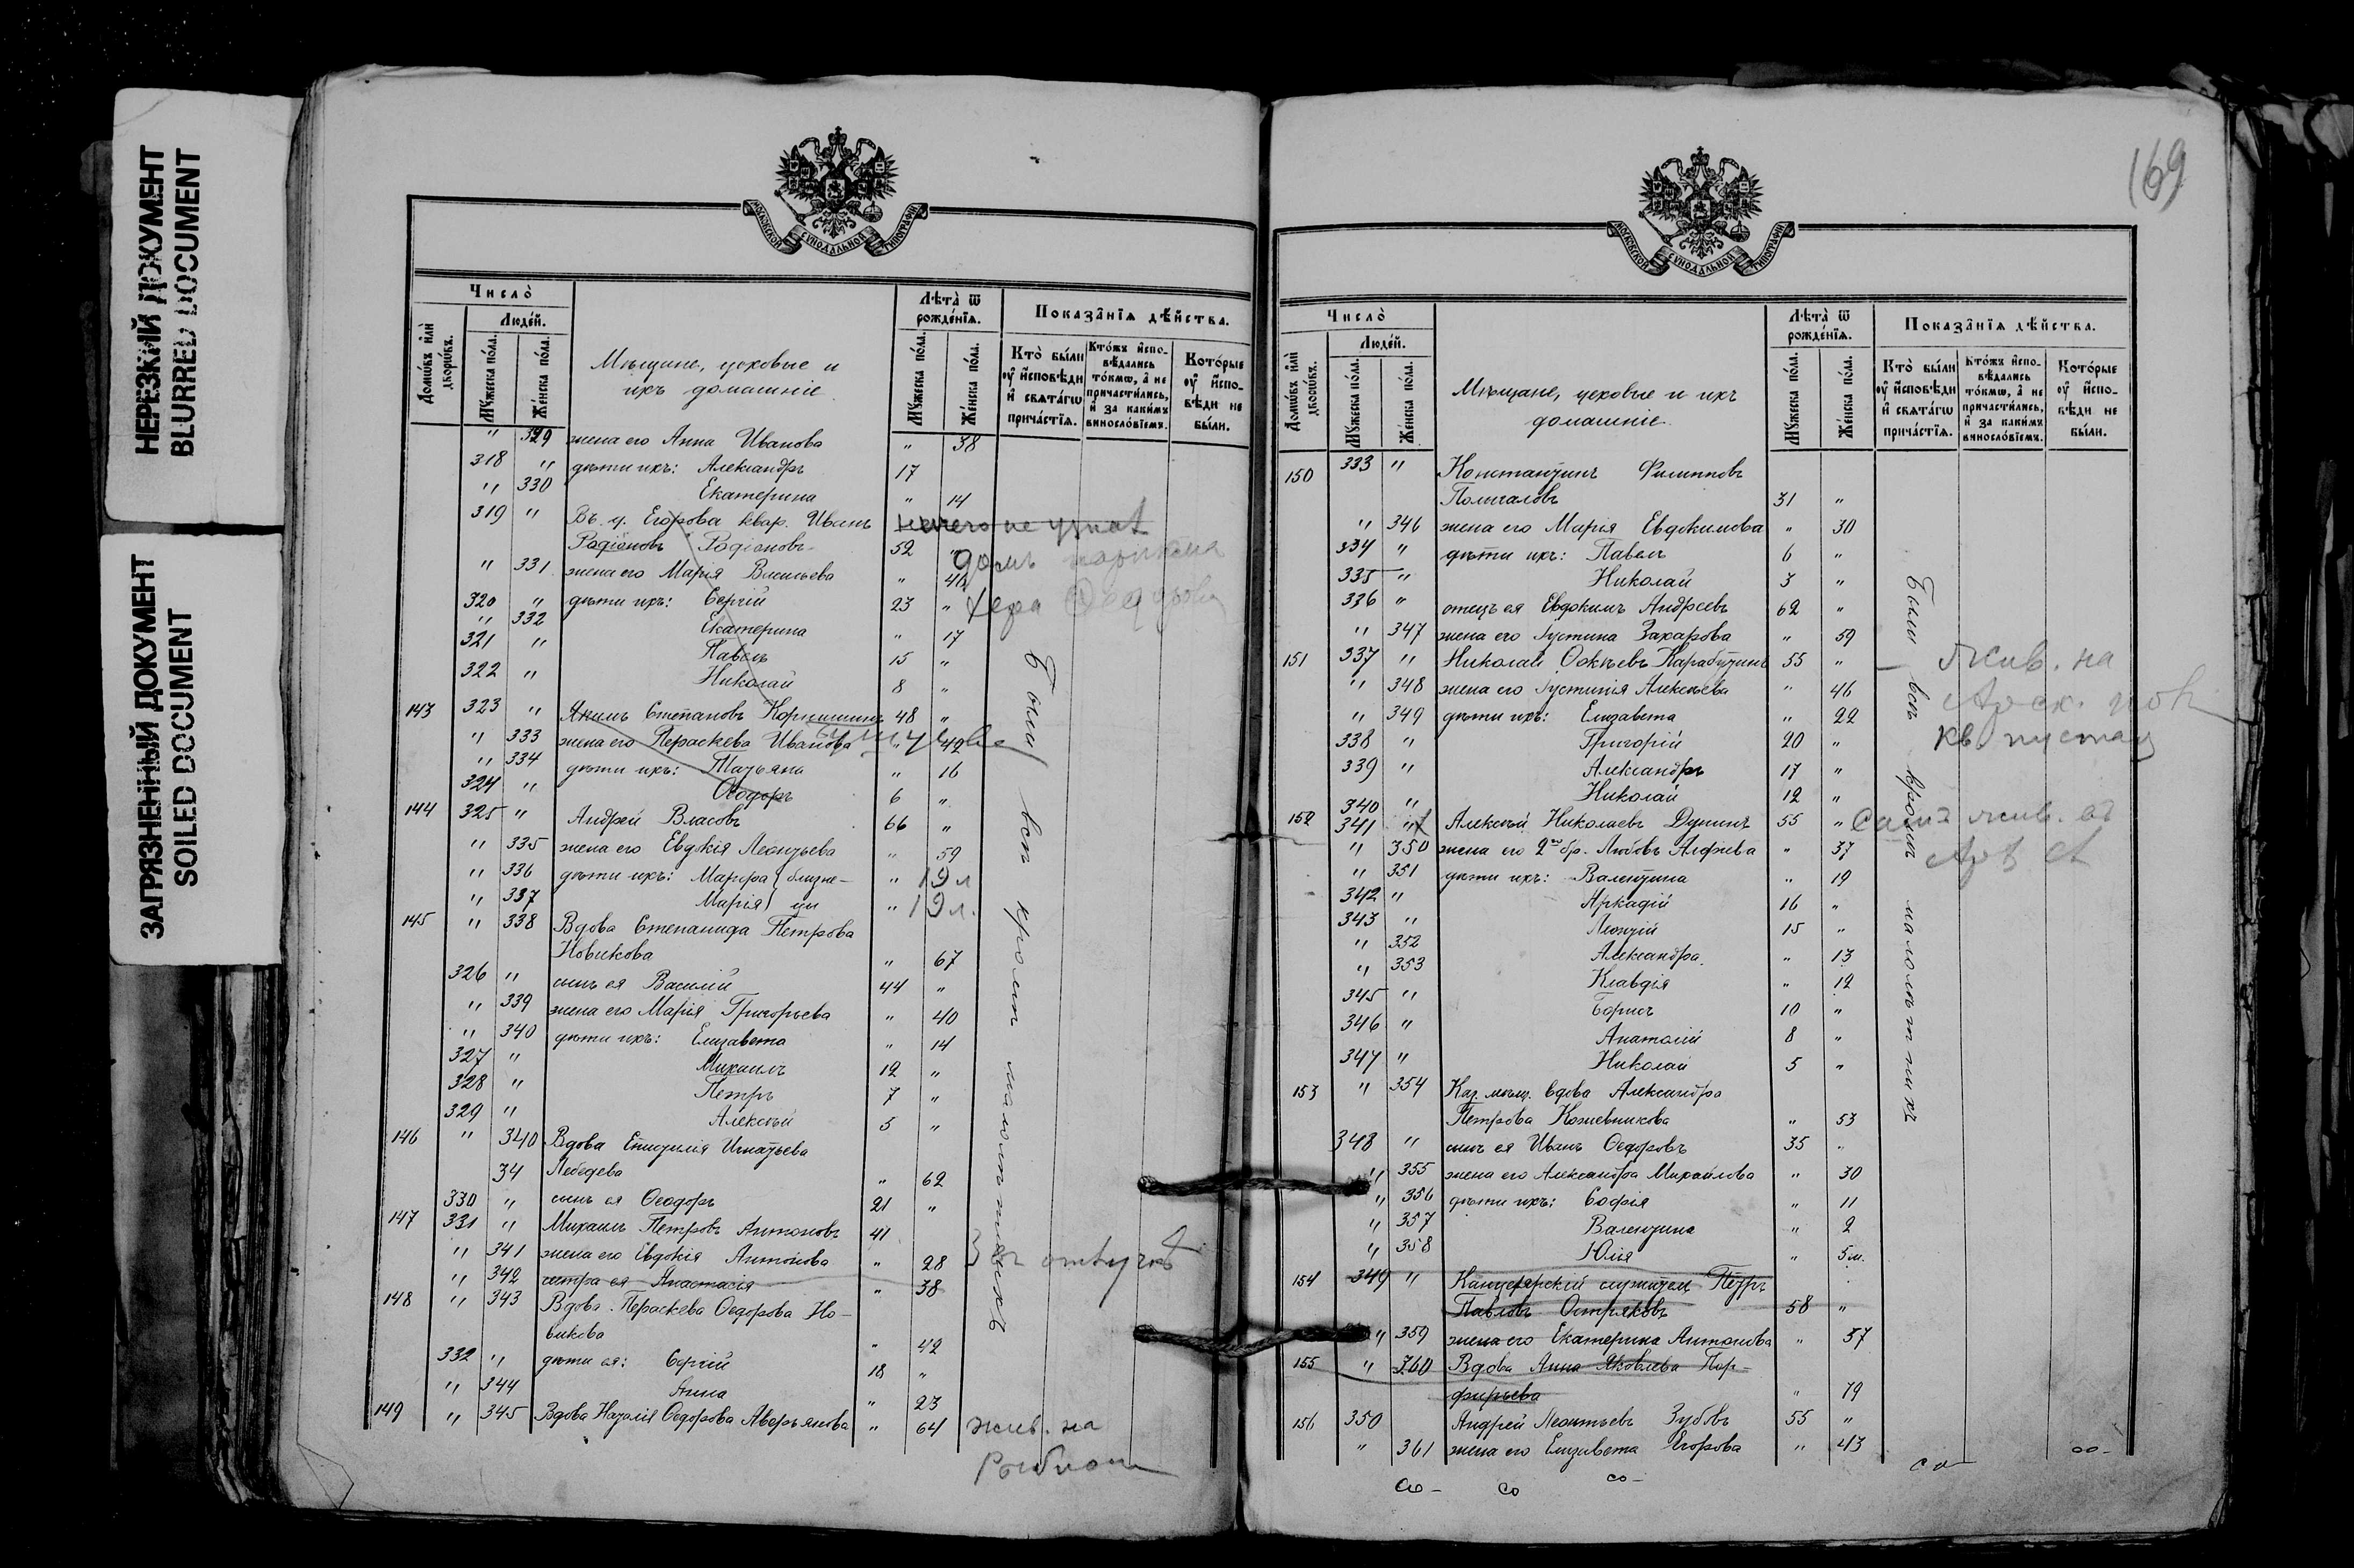 НЕРЕЗКИЙ ДОКУМЕНТ
BLURRED DOCUMENT
ЗАГРЯЗНЕННЫЙ ДОКУМЕНТ
SOILED DOCUMENT
МОСКОВСКОЙ СѴНОДАЛЬНОЙ ТИПОГРАФІИ
Число̀
Людей.
Домѡвъ или дворѡвъ.
Мꙋжеска пола.
Женска пола.
Мѣщане, цеховые и
ихъ домашніе.
Лѣта̀ ѿ рожденїѧ.
Мꙋжеска пола.
Женска пола.
Показанїѧ дѣйства.
Кто̀ были ᲂу҆ исповѣди и свѧтагѡ причастїѧ.
Ктожъ исповѣдались токмѡ, а не причастились, и за какимъ винословїемъ.
Которые ᲂу҆ исповѣди не были.
" 329 жена его Анна Иванова " 38
318 " дѣти ихъ: Александръ 17
" 330 Екатерина " 14
319 " Въ д. Егорова квар. Иванъ
Радіоновъ Радіоновъ 52 "
" 331 жена его Марія Васильева " 46
320 " дѣти ихъ: Сергій 23 "
" 332 Екатерина " 17
321 " Павелъ 15 "
322 " Николай 8 "
143 323 " Якимъ Степановъ 48 "
" 333 жена его Параскева Иванова " 42
" 334 дѣти ихъ: Татьяна " 16
324 " Ѳеодоръ 6 "
144 325 " Андрей Власовъ 66 "
" 335 жена его Евдокія Леонтьева " 59
" 336 дѣти ихъ: Марѳа близне- " 19 л
" 337 Марія цы " 19 л.
145 " 338 Вдова Степанида Петрова
Новикова " 67
326 " сынъ ея Василій 44 "
" 339 жена его Марія Григорьева " 40
" 340 дѣти ихъ: Елизавета " 14
327 " Михаилъ 12 "
328 " Петръ 7 "
329 " Алексѣй 5 "
146 " 340 Вдова Игнатьева
34 Лебедева " 62
330 " сынъ ея Ѳеодоръ 21 "
147 331 " Михаилъ Петровъ Антоновъ 41
" 341 жена его Евдокія Антонова " 28
" 342 сестра ея Анастасія " 38
148 " 343 Вдова Параскева Ѳедорова Но-
викова " 42
332 " дѣти ея: Сергій 18 "
" 344 Анна " 23
149 " 345 Вдова Наталія Ѳедорова Аверьянова " 64
нечего не узнат
домъ
Ѳедорова
Были всѣ кромѣ малолѣтнихъ
въ отлучкѣ
жив. на
169
МОСКОВСКОЙ СѴНОДАЛЬНОЙ ТИПОГРАФІИ
Число̀
Людей.
Домѡвъ или дворѡвъ.
Мꙋжеска пола.
Женска пола.
Мѣщане, цеховые и ихъ
домашніе.
Лѣта̀ ѿ рожденїѧ.
Мꙋжеска пола.
Женска пола.
Показанїѧ дѣйства.
Кто̀ были ᲂу҆ исповѣди и свѧтагѡ причастїѧ.
Ктожъ исповѣдались токмѡ, а не причастились, и за какимъ винословїемъ.
Которые ᲂу҆ исповѣди не были.
150 333 " Константинъ Филипповъ
31 "
" 346 жена его Марія Евдокимова " 30
334 " дѣти ихъ: Павелъ 6 "
335 " Николай 3 "
336 " отецъ ея Евдокимъ Андреевъ 62 "
" 347 жена его Іустина Захарова " 59
151 337 " Николай 55 "
" 348 жена его Іустинія Алексѣева " 46
" 349 дѣти ихъ: Елизавета " 22
338 " Григорій 20 "
339 " Александръ 17 "
340 " Николай 12 "
152 341 " Алексѣй Николаевъ Дунинъ 55 "
" 350 жена его 2мъ бр. Любовь " 37
" 351 дѣти ихъ: Валентина " 19
342 " Аркадій 16 "
343 " Леонтій 15 "
" 352 Александра " 13
" 353 Клавдія " 12
345 " Борисъ 10 "
346 " Анатолій 8 "
347 " Николай 5 "
153 " 354 Каз. мѣщ. вдова Александра
Петрова Кожевникова " 53
348 " сынъ ея Иванъ Ѳедоровъ 35 "
" 355 жена его Александра Михайлова " 30
" 356 дѣти ихъ: Софія " 11
" 357 Валентина " 2
" 358 Юлія " 5 м.
154 349 " Канцелярскій служитель Петръ
Павловъ Остряковъ 58 "
" 359 жена его Екатерина Антонова " 57
155 " 360 Вдова Анна Яковлева Пор-
фирьева " 79
156 350 Андрей Леонтьевъ Зубовъ 55 "
" 361 жена его Елизавета Егорова " 43
Были всѣ кромѣ малолѣтнихъ
жив. на
кв. пустая
Самъ жив.